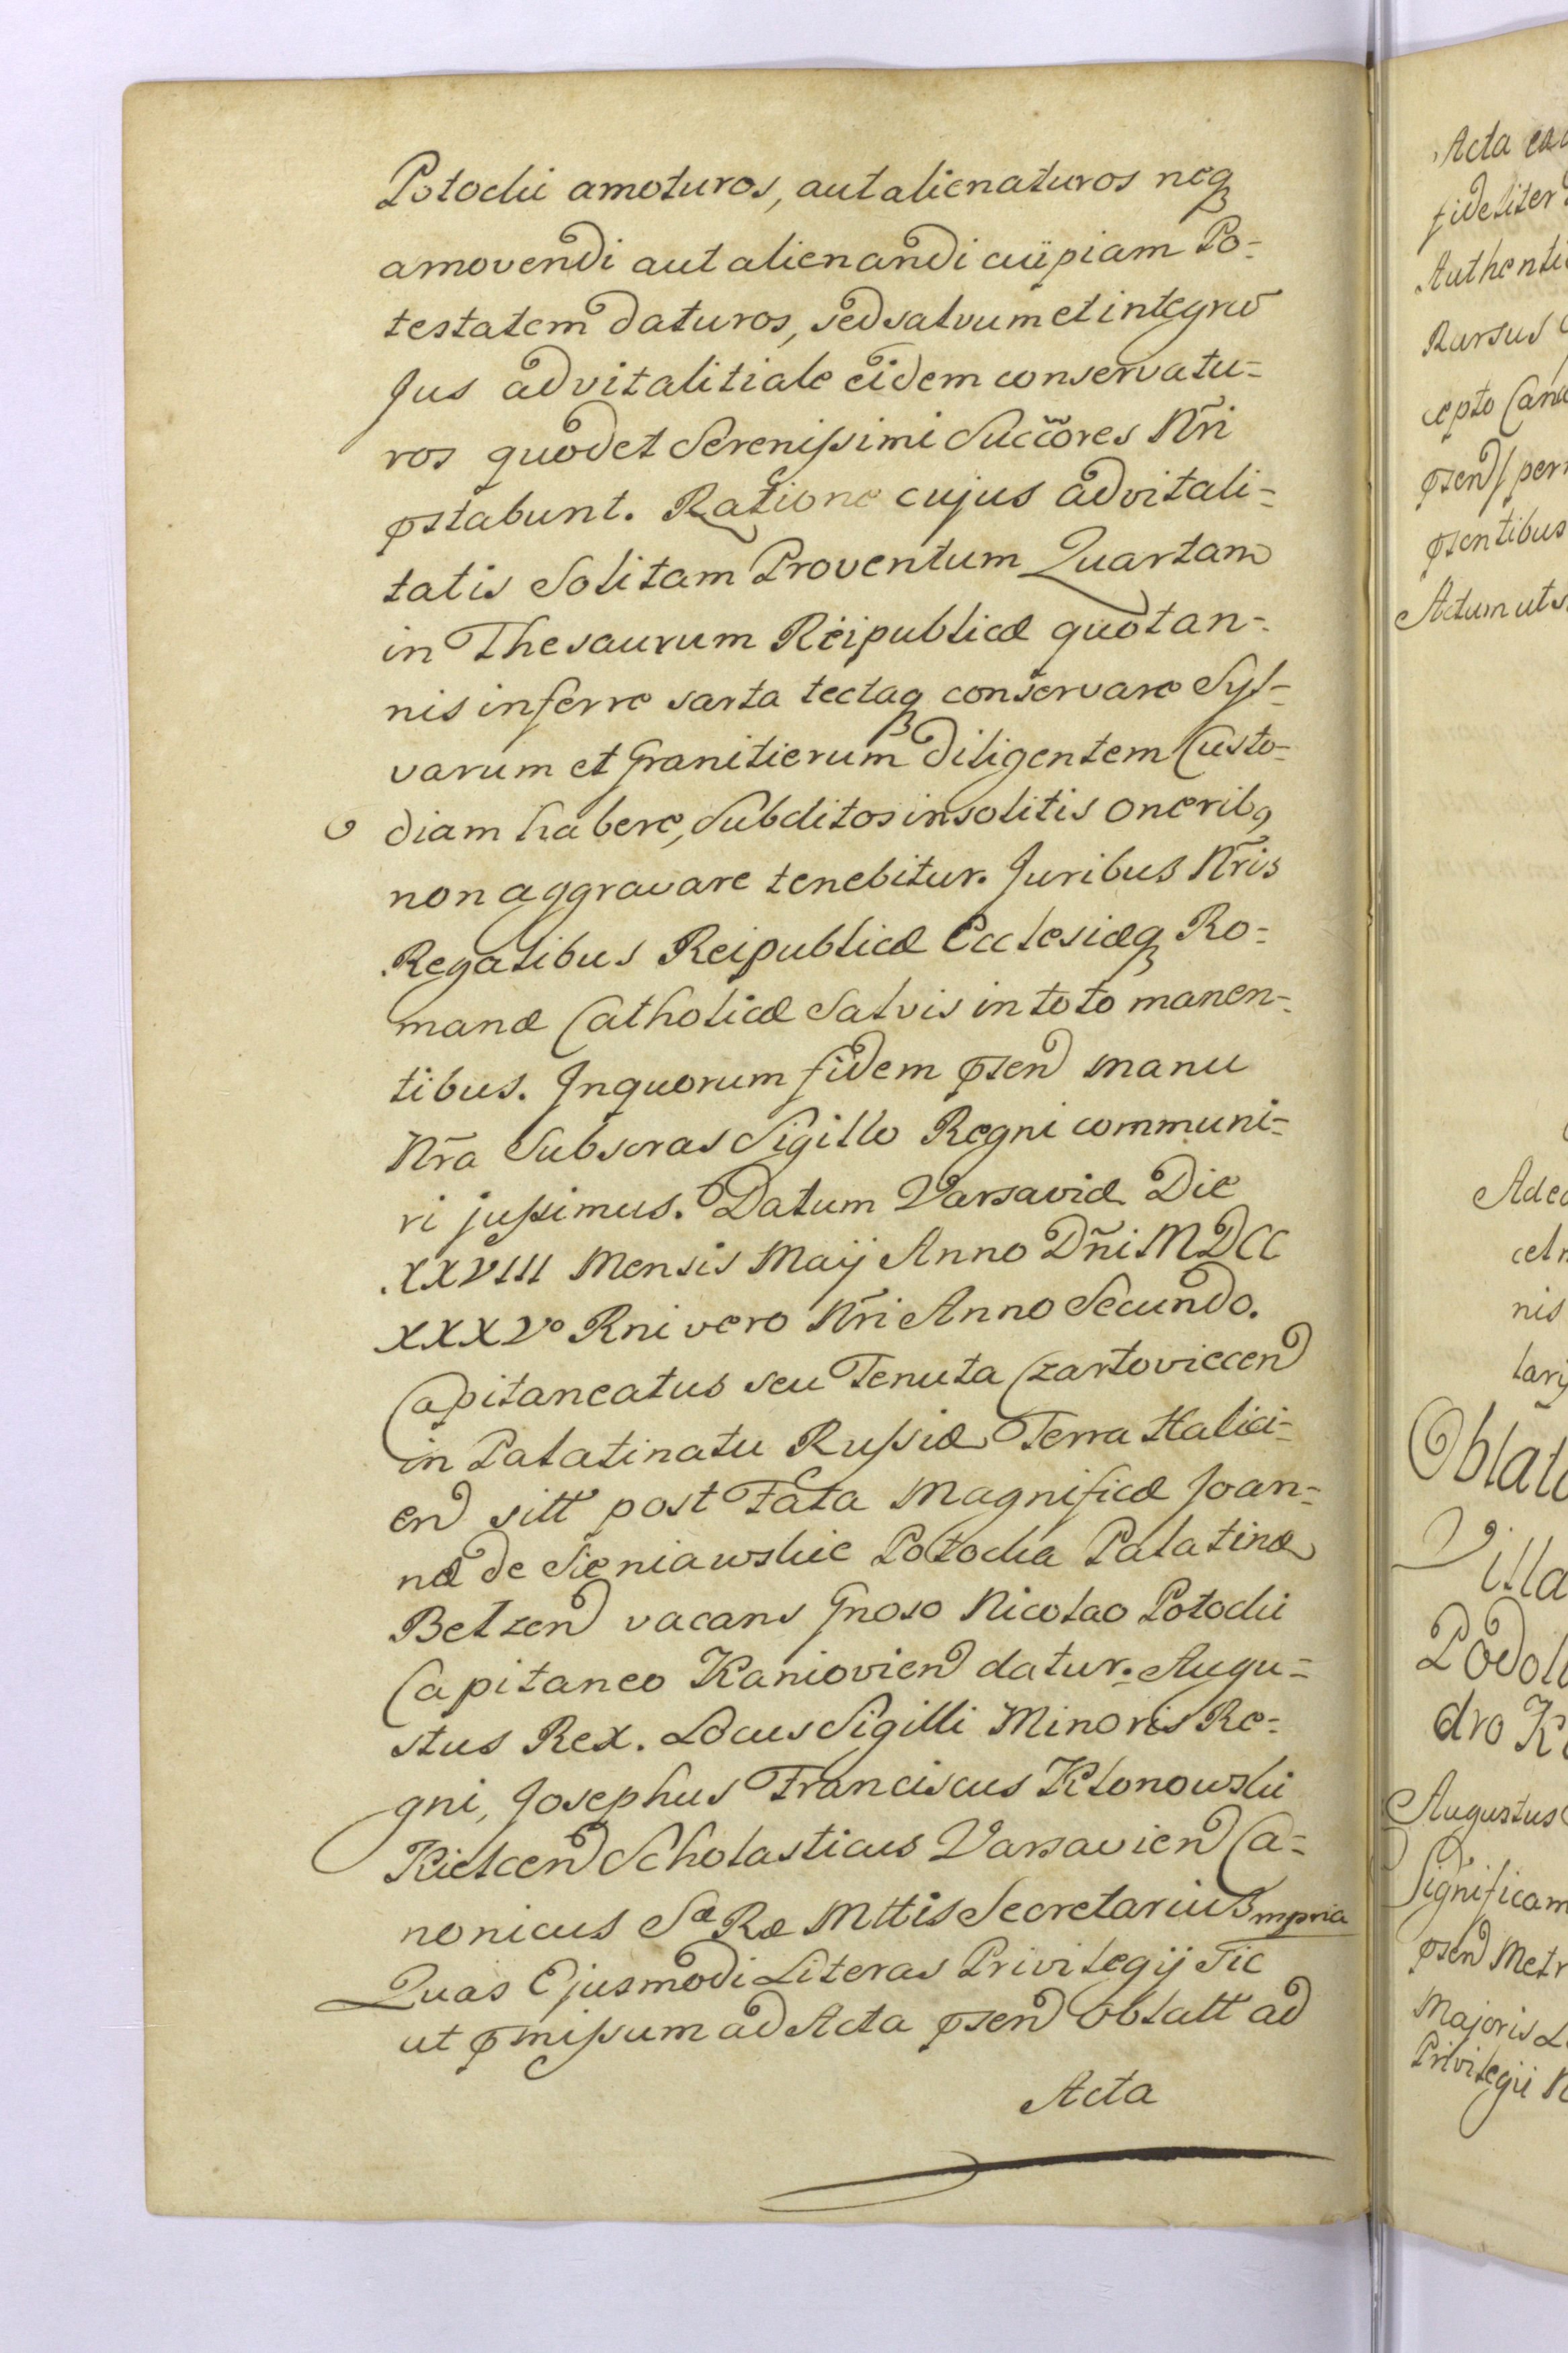 Potocki amoturos, aut alienaturos neqꝫ
amovendi aut alienandi cuipiam Po=
testatem daturos, sed salvum et integrũ
Jus advitalitiale eidem conservatu=
ros quod et Serenissimi Succõres Nr̃i
pstabunt. Ratione cujus advitali=
tatis Solitam Proventum Quartam
in Thesaurum Reipublicæ quotan=
nis inferre sarta tectaqꝫ conservare Syl=
varum et Granitierum diligentem Custo=
diam habere, Subditos insolitis oneribꝯ
non aggravare tenebitur. Juribus Nr̃is
Regalibus Reipublicæ Ecclesiæqꝫ Ro=
manæ Catholicæ Salvis in toto manen=
tibus. In quorum fidem psen manu
Nr̃a Subscras Sigillo Regni communi=
ri jussimus. Datum Varsaviæ Die
XXVIII Mensis Maij Anno Dñi MDCC
XXXVº Rni vero Nr̃i Anno Secundo.
Capitaneatus seu Tenuta Czartoviecen
in Palatinatu Russiæ Terra Halici=
en sitt post Fata Magnificæ Joan=
næ de Sieniawskie Potocka Palatinæ
Belzen vacans Gnoso Nicolao Potocki
Capitaneo Kaniovien datur. Augu=
stus Rex. Locus Sigilli Minoris Re=
gni, Josephus Franciscus Klonowski
Kielcen Scholasticus Varsavien Ca=
nonicus Sæ Ræ Mttis Secretarius mpria
Quas Ejusmodi Literas Privilegij Sic
ut pmissum ad Acta psen oblatt ad
Acta
Acta
fideliter
Authenti
Rursus
cepto Can
psen per
psentibus
Actum ut s
Adec
cel
nis
larij
Oblat
Villa
Podol
dro K
Augustus
Significam
psen Metr
Majoris L
Privilegii N